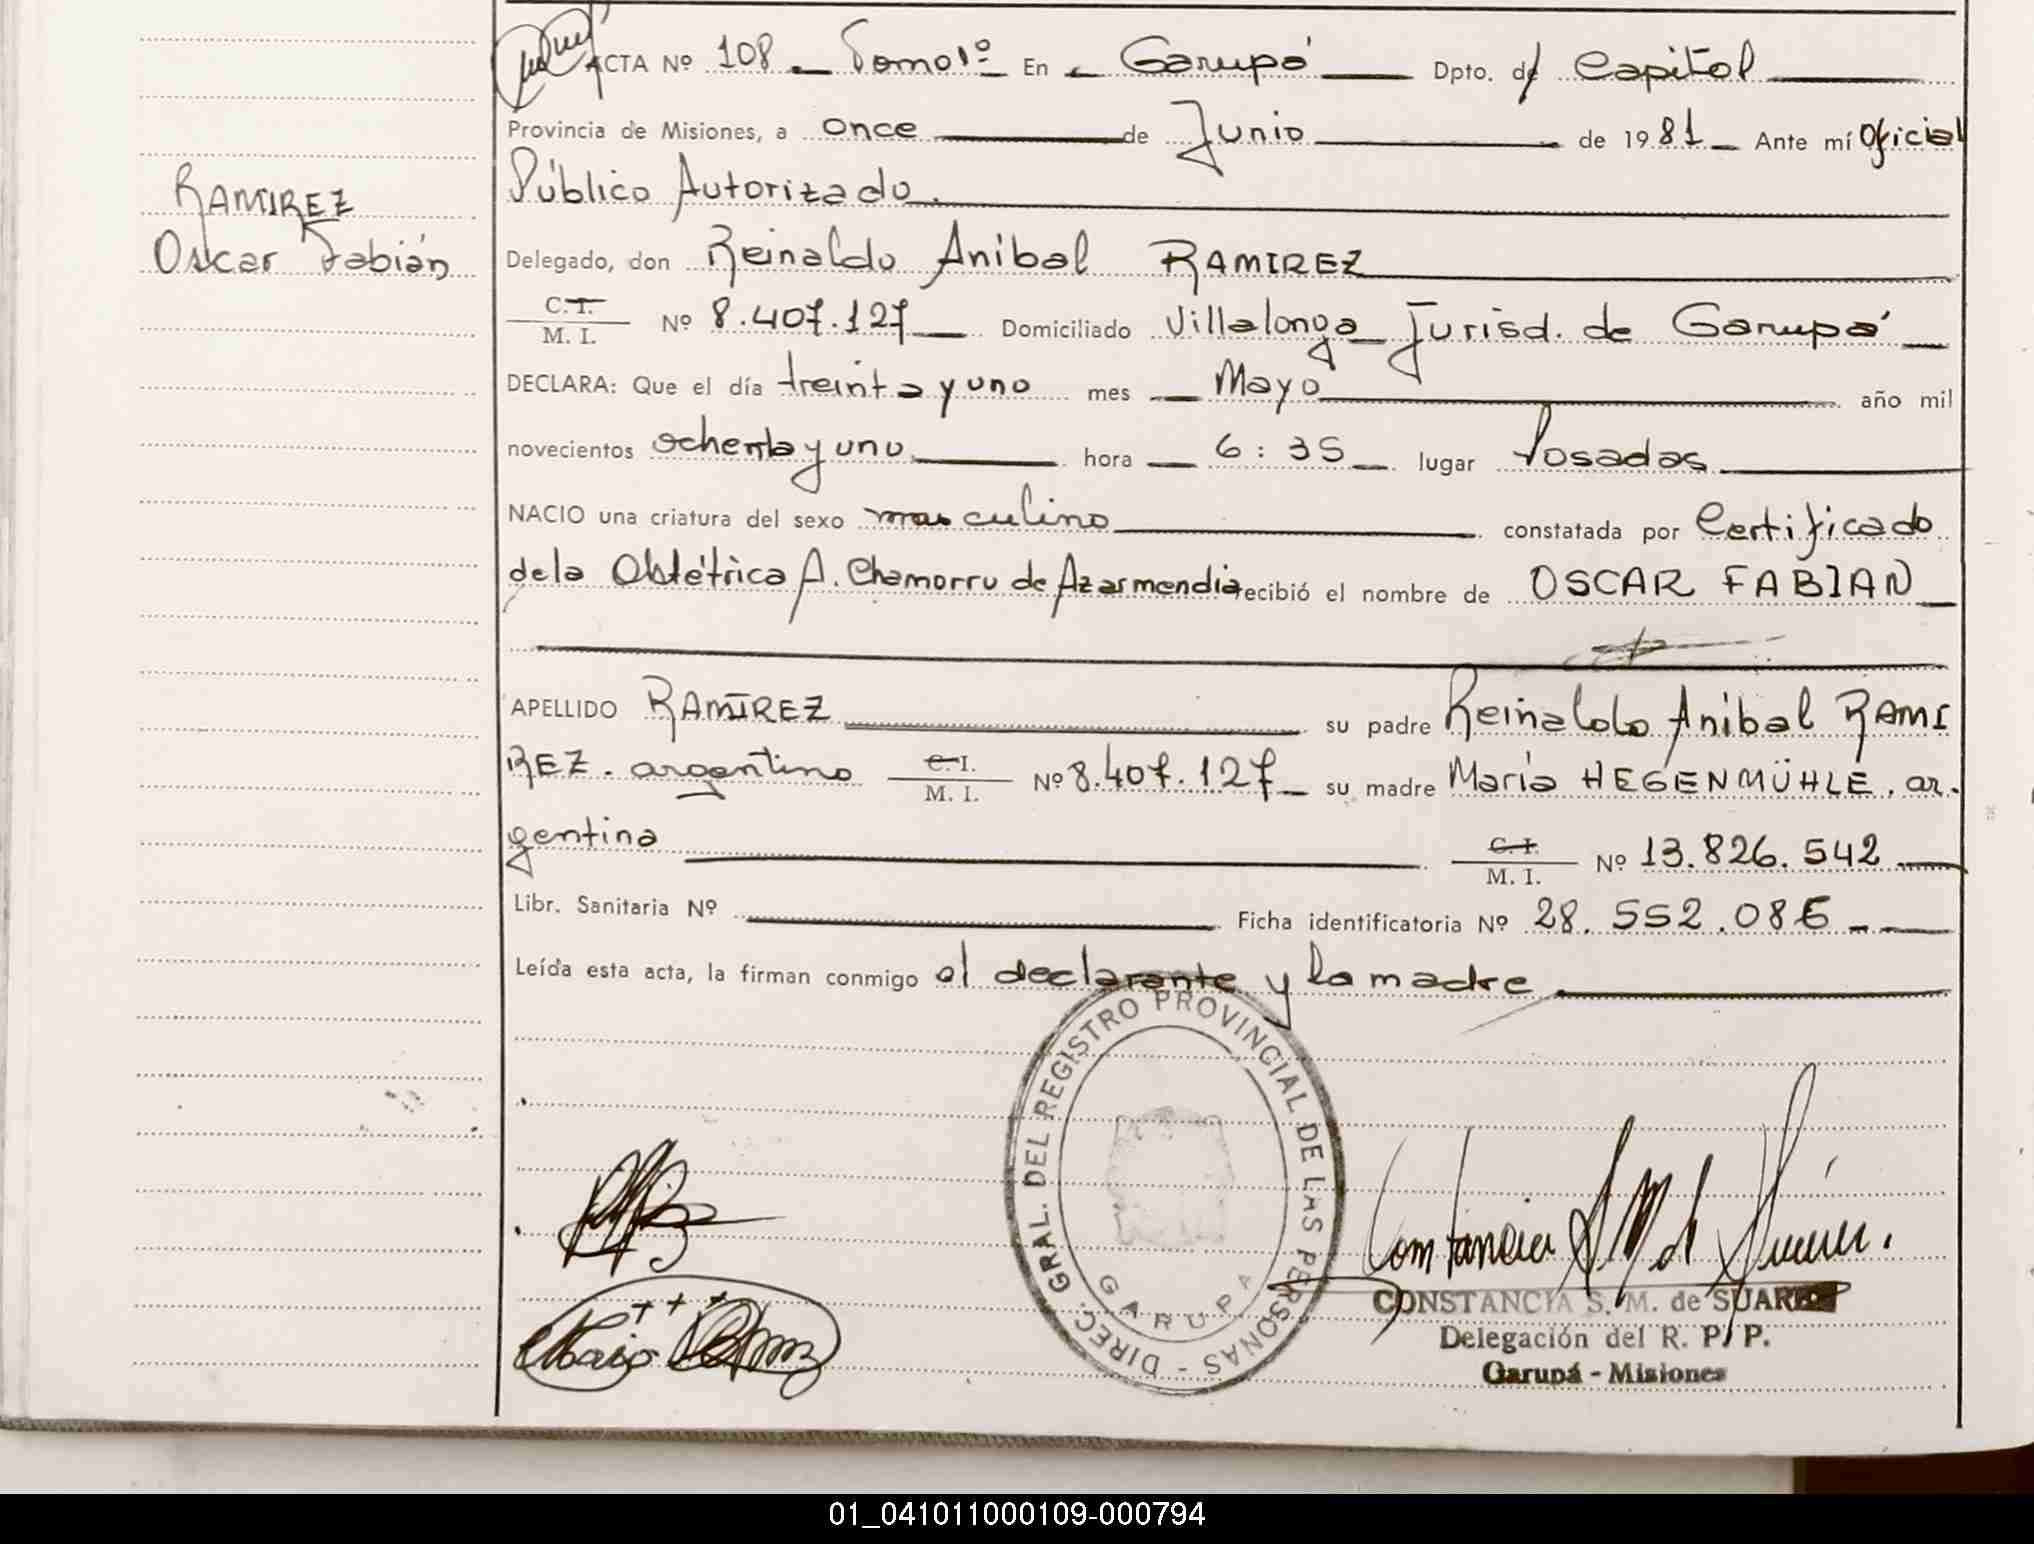 ACTA Nº 108 Tomo 1º En Garupá Dpto. de Capital
Provincia de Misiones, a once de Junio de 1981 Ante mí Oficial
Público Autorizado.
RAMIREZ
Oscar Fabián
Delegado, don Reinaldo Anibal RAMIREZ
C.I. M. I. Nº 8.407.127 Domiciliado Villalonga Jurisd. de Garupá
DECLARA: Que el día treinta y uno mes Mayo año mil
novecientos ochenta y uno hora 6:35 lugar Posadas
NACIO una criatura del sexo masculino constatada por Certificado
de la Obstétrica A. Chamorro de Azarmendia recibió el nombre de OSCAR FABIAN
APELLIDO RAMIREZ su padre Reinaldo Anibal RAMI
REZ. argentino C.I. M. I. Nº 8.407.127 su madre María HEGENMÜHLE, ar-
gentina C.I. M. I. Nº 13.826.542
Libr. Sanitaria Nº Ficha identificatoria Nº 28.552.086
Leída esta acta, la firman conmigo el declarante y la madre
DIREC. GRAL. DEL REGISTRO PROVINCIAL DE LAS PERSONAS -
GARUPA
CONSTANCIA S. M. de SUAREZ
Delegación del R. P. P.
Garupá - Misiones
01_041011000109-000794